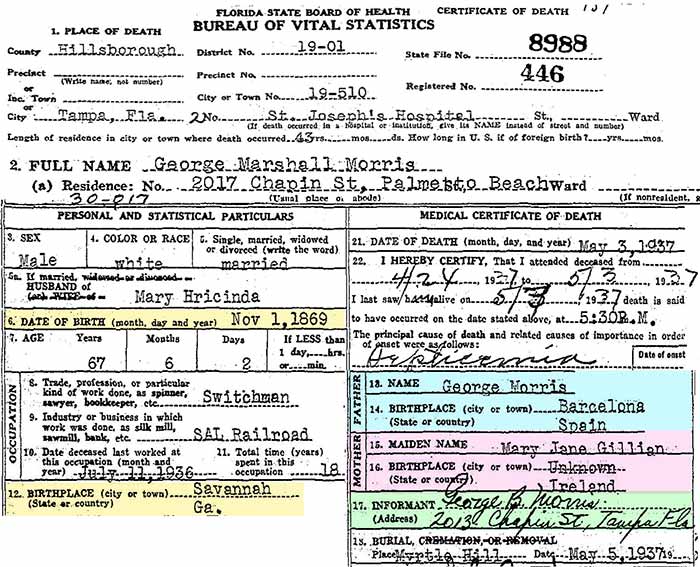 FLORIDA STATE BOARD OF HEALTH CERTIFICATE OF DEATH
BUREAU OF VITAL STATISTICS
1. PLACE OF DEATH
County Hillsborough District No. 19-01 State File No. 8988
Precinct Precinct No. 446
(Write name; not number) Registered No.
or
Inc. Town City or Town No. 19-510
or
City Tampa, Fla. 2 No. St. Joseph's Hospital St., Ward
(If death occurred in a hospital or institution, give its NAME instead of street and number)
Length of residence in city or town where death occurred 43 yrs. mos. ds. How long in U. S. if of foreign birth? yrs. mos.
2. FULL NAME George Marshall Morris
(a) Residence: No. 2017 Chapin St, Palmetto Beach Ward
30-017 (Usual place of abode) (If nonresident,
PERSONAL AND STATISTICAL PARTICULARS
3. SEX 4. COLOR OR RACE 5. Single, married, widowed
or divorced (write the word)
Male white married
5a. If married, widowed or divorced
HUSBAND of
(or) WIFE of Mary Hricinda
6. DATE OF BIRTH (month, day and year) Nov 1,1869
7. AGE Years Months Days If LESS than
1 day, hrs.
67 6 2 or min.
OCCUPATION
8. Trade, profession, or particular
kind of work done, as spinner,
sawyer, bookkeeper, etc. Switchman
9. Industry or business in which
work was done, as silk mill,
sawmill, bank, etc. SAL Railroad
10. Date deceased last worked at
this occupation (month and
year) July 11,1936
11. Total time (years)
spent in this
occupation 18
12. BIRTHPLACE (city or town) Savannah
(State or country) Ga.
MEDICAL CERTIFICATE OF DEATH
21. DATE OF DEATH (month, day, and year) May 3,1937
22. I HEREBY CERTIFY, That I attended deceased from
4/24 1937 to 5/3 1937
I last saw alive on 5/3 1937 death is said
to have occurred on the date stated above, at 5:30P.M.
The principal cause of death and related causes of importance in order
of onset were as follows: Date of onset
Septicemia
FATHER
13. NAME George Morris
14. BIRTHPLACE (city or town) Barcelona
(State or country) Spain
MOTHER
15. MAIDEN NAME Mary Jane Gillian
16. BIRTHPLACE (city or town) Unknown
(State or country) Ireland
17. INFORMANT George B. Morris
(Address) 2013 Chapin St, Tampa Fla
18. BURIAL, CREMATION, OR REMOVAL
Place Myrtle Hill Date May 5,1937 19